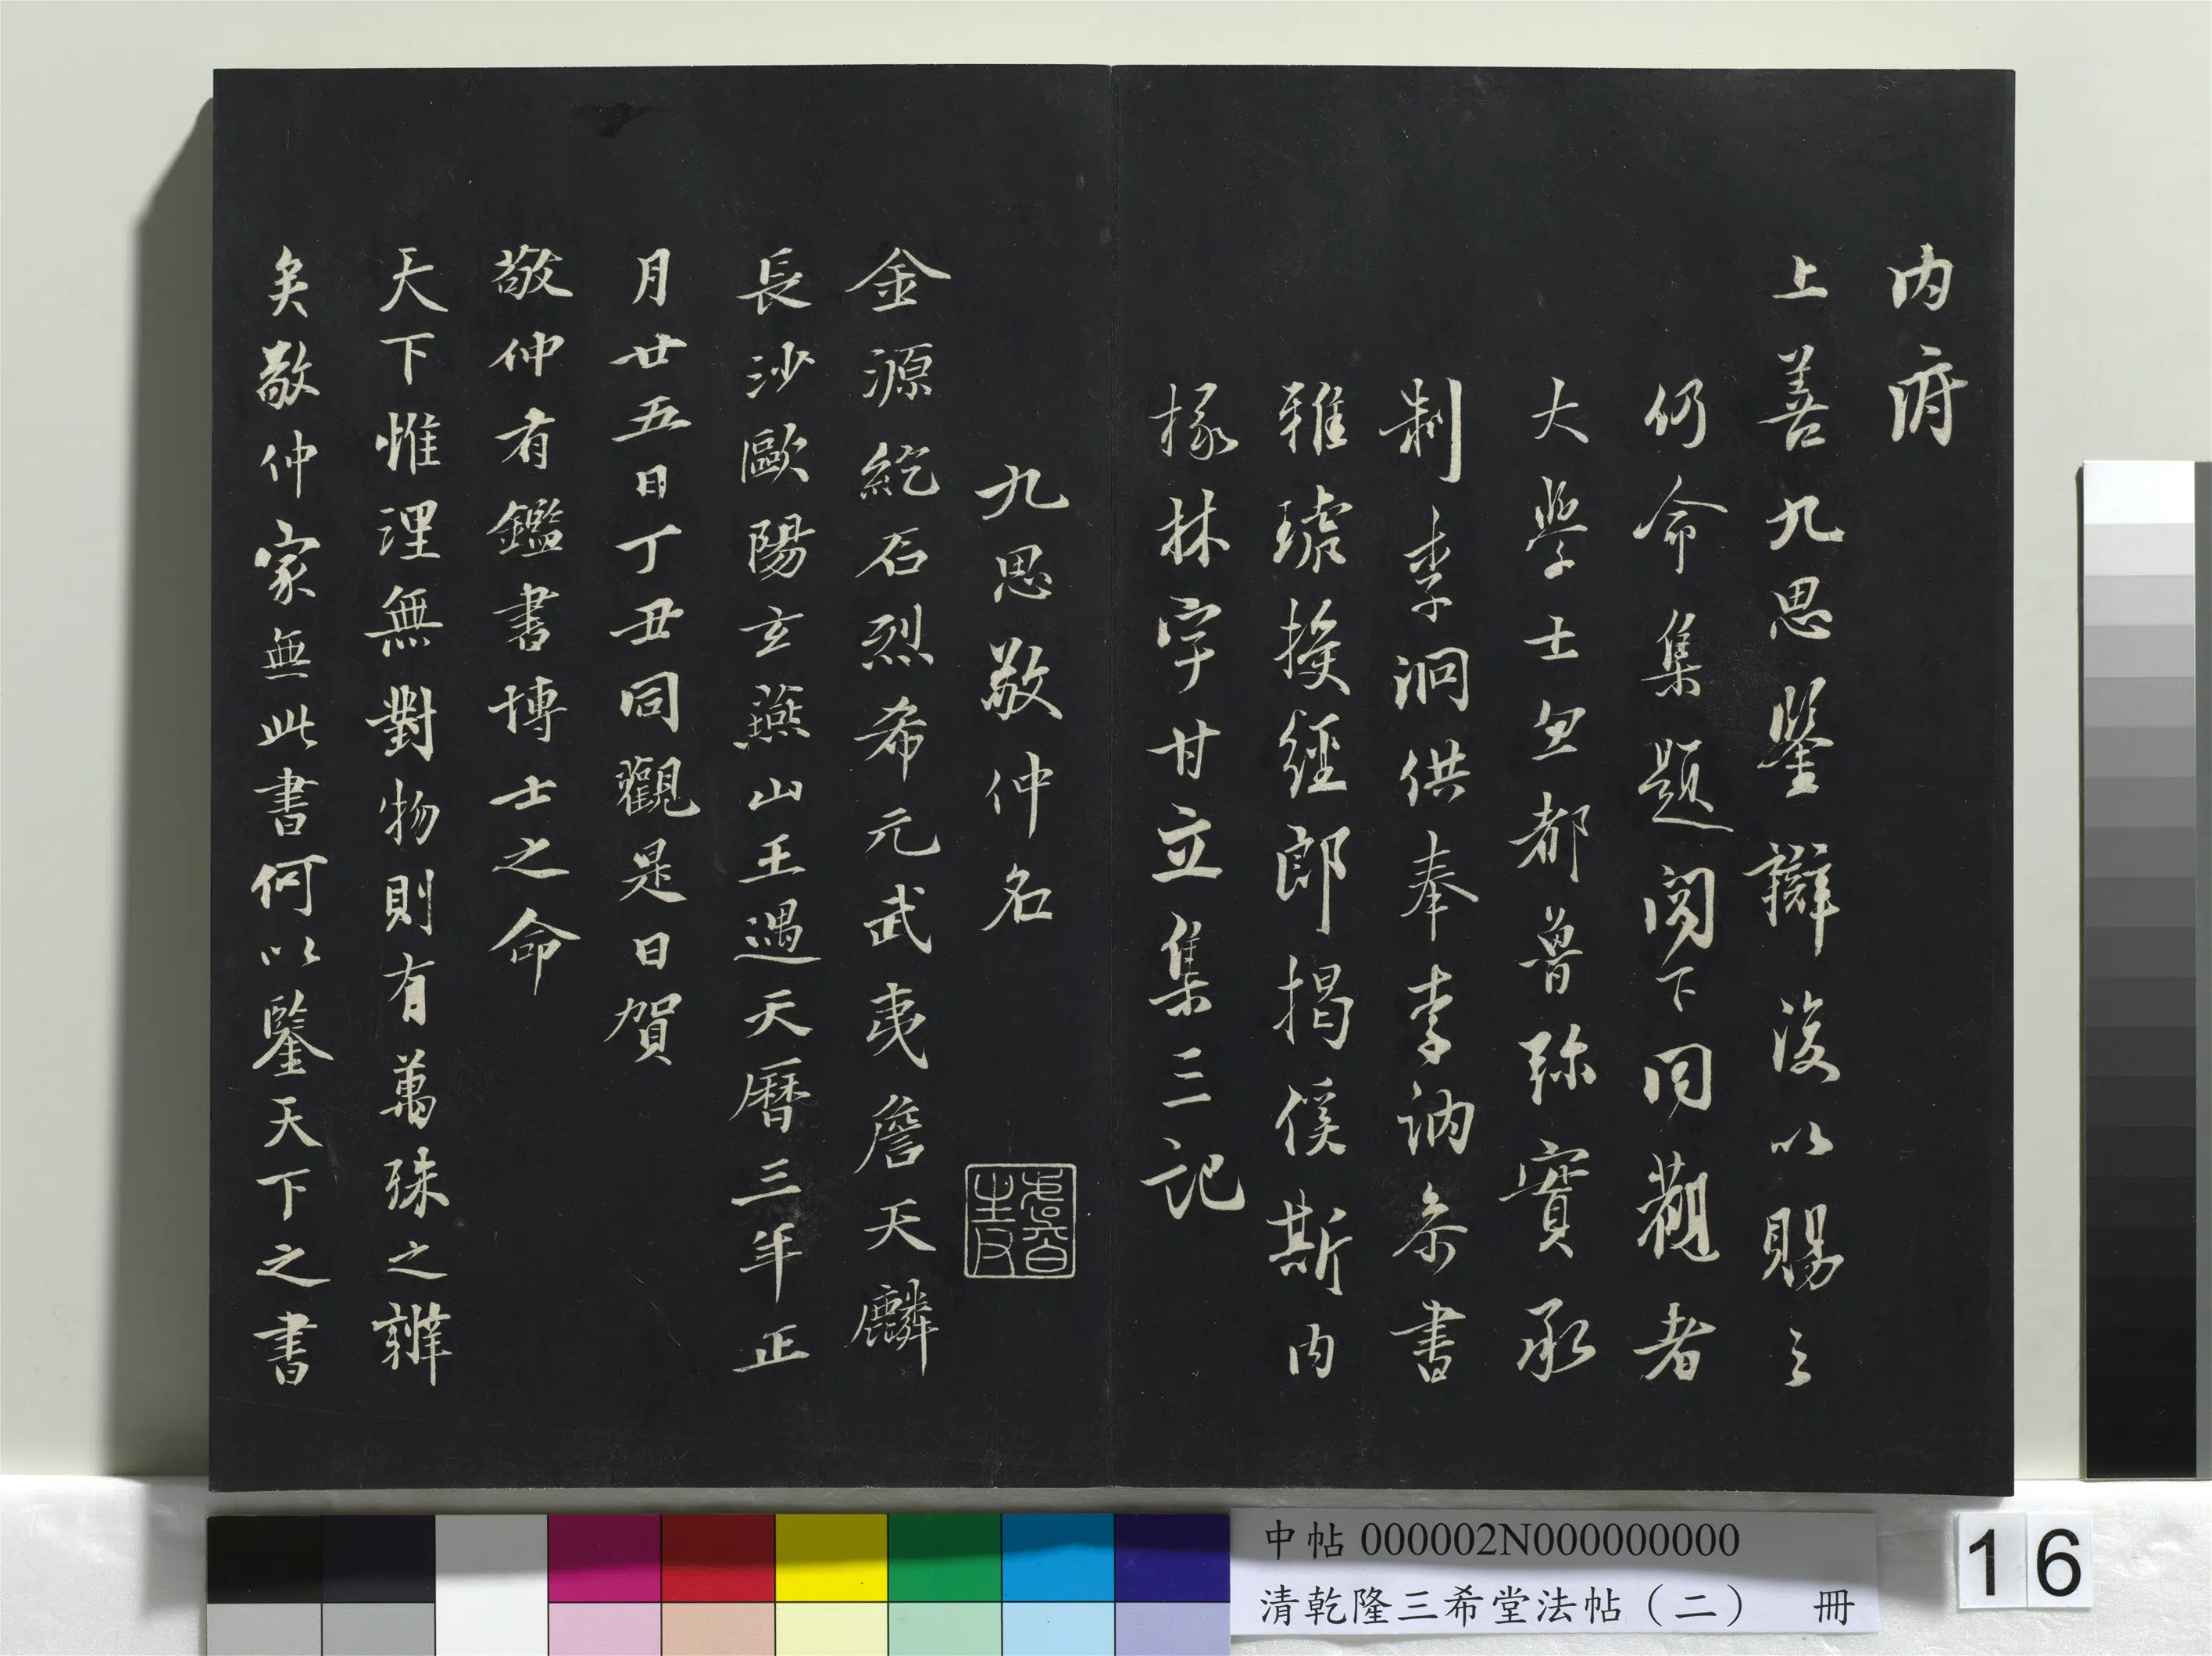 内府
上善九思鑒辯後以賜之
仍命集題閣下同觀者
大學士忽都魯弥實承
制李泂供奉李訥叅書
雅琥授經郎揭傒斯内
掾林宇甘立集三記
九思敬仲名
金源紇石烈希元武夷詹天麟
長沙歐陽玄燕山王遇天曆三年正
月廿五日丁丑同觀是日賀
敬仲有鑑書博士之命
天下惟理無對物則有萬殊之辨
矣敬仲家無此書何以鑒天下之書
中帖 000002N000000000
清乾隆三希堂法帖（二） 冊
16